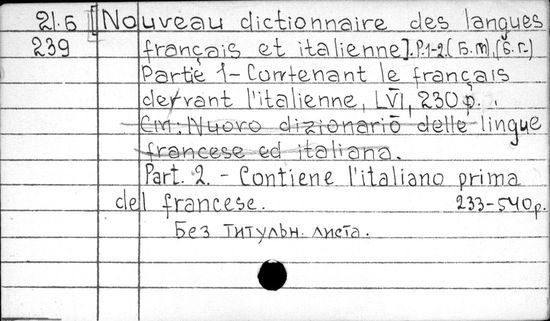 21.б [Nouveau dictionnaire des langues
239 français et italienne]. P.1-2.[Б.м],[Б.г.]
Partie 1 - Contenant le français
devant l'italienne, LVI, 230 p.
См: Nuovo dizionario delle lingue
francese ed italiana.
Part. 2. - Contiene l'italiano prima
del francese. 233-540 p.
Без титульн. листа.